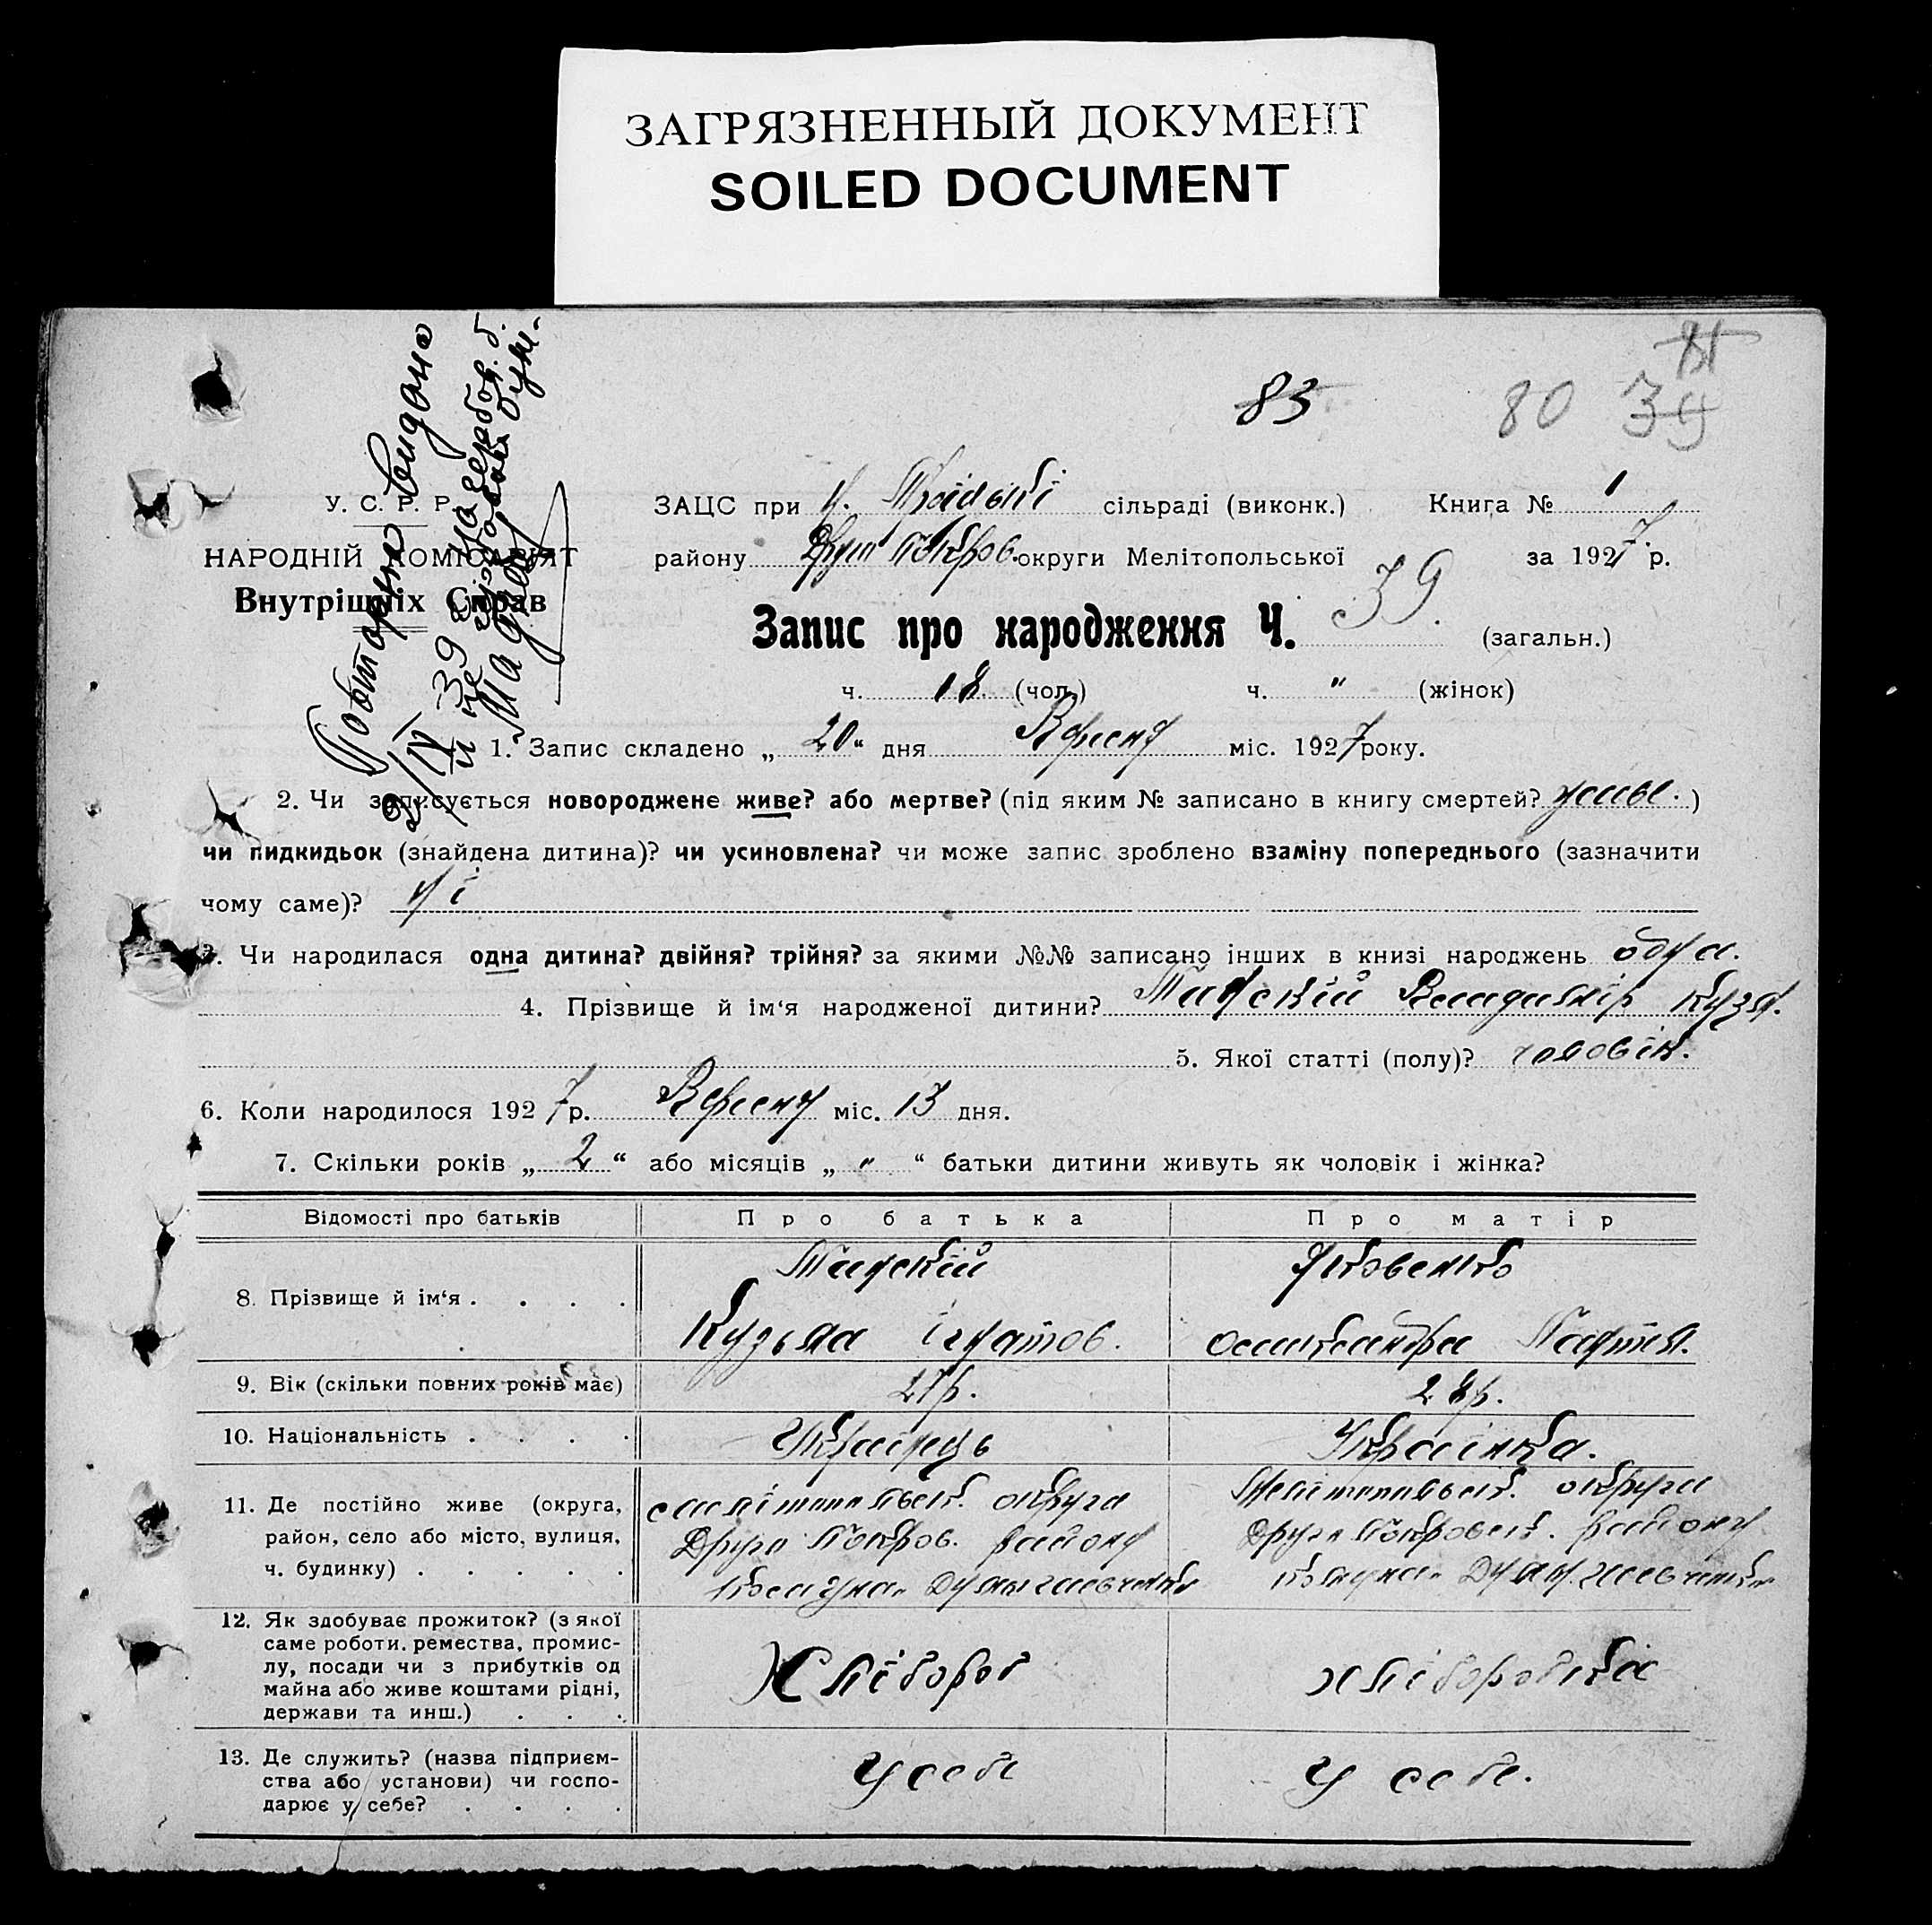 ЗАГРЯЗНЕННЫЙ ДОКУМЕНТ
SOILED DOCUMENT
83
80 39
Повторно видано
У. С. Р. Р.
НАРОДНІЙ КОМІСАРІЯТ
Внутрішніх Справ
ЗАЦС при сільраді (виконк.) Книга № 1
району округи Мелітопольської за 1927 р.
Запис про народження Ч. 39. (загальн.)
ч. 18 (чол.) ч. " (жінок)
1. Запис складено „ 20 “ дня Вересня міс. 1927 року.
2. Чи записується новороджене живе? або мертве? (під яким № записано в книгу смертей? живе.)
чи пидкидьок (знайдена дитина)? чи усиновлена? чи може запис зроблено взаміну попереднього (зазначити
чому саме)? Ні
3. Чи народилася одна дитина? двійня? трійня? за якими №№ записано інших в книзі народжень одна.
4. Прізвище й ім‘я народженої дитини? Владимір Кузм.
5. Якої статті (полу)? чоловік.
6. Коли народилося 1927 р. Вересня міс. 13 дня.
7. Скільки років „ 2 “ або місяців „ " “ батьки дитини живуть як чоловік і жінка?
Відомості про батьків Про батька Про матір
8. Прізвище й ім‘я . . . . Яковенко
Кузьма Ігнатов.
9. Вік (скільки повних років має) 28р.
10. Національність . . . . Українець Українка.
11. Де постійно живе (округа, мелітопольск. округа Мелітопольск. округа
район, село або місто, вулиця, Покров. району Покровск. району
ч. будинку) . . . . .
12. Як здобуває прожиток? (з якої
саме роботи, ремества, промис-
лу, посади чи з прибутків од Хлібороб хліборобка
майна або живе коштами рідні,
держави та инш.) . . .
13. Де служить? (назва підприєм-
ства або установи) чи госпо- У себе У себе.
дарює у себе? . . . .